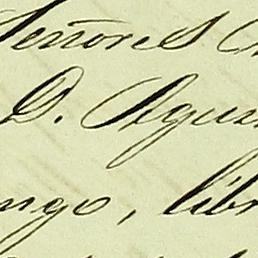 Señores
D. Agus
ngo, libr